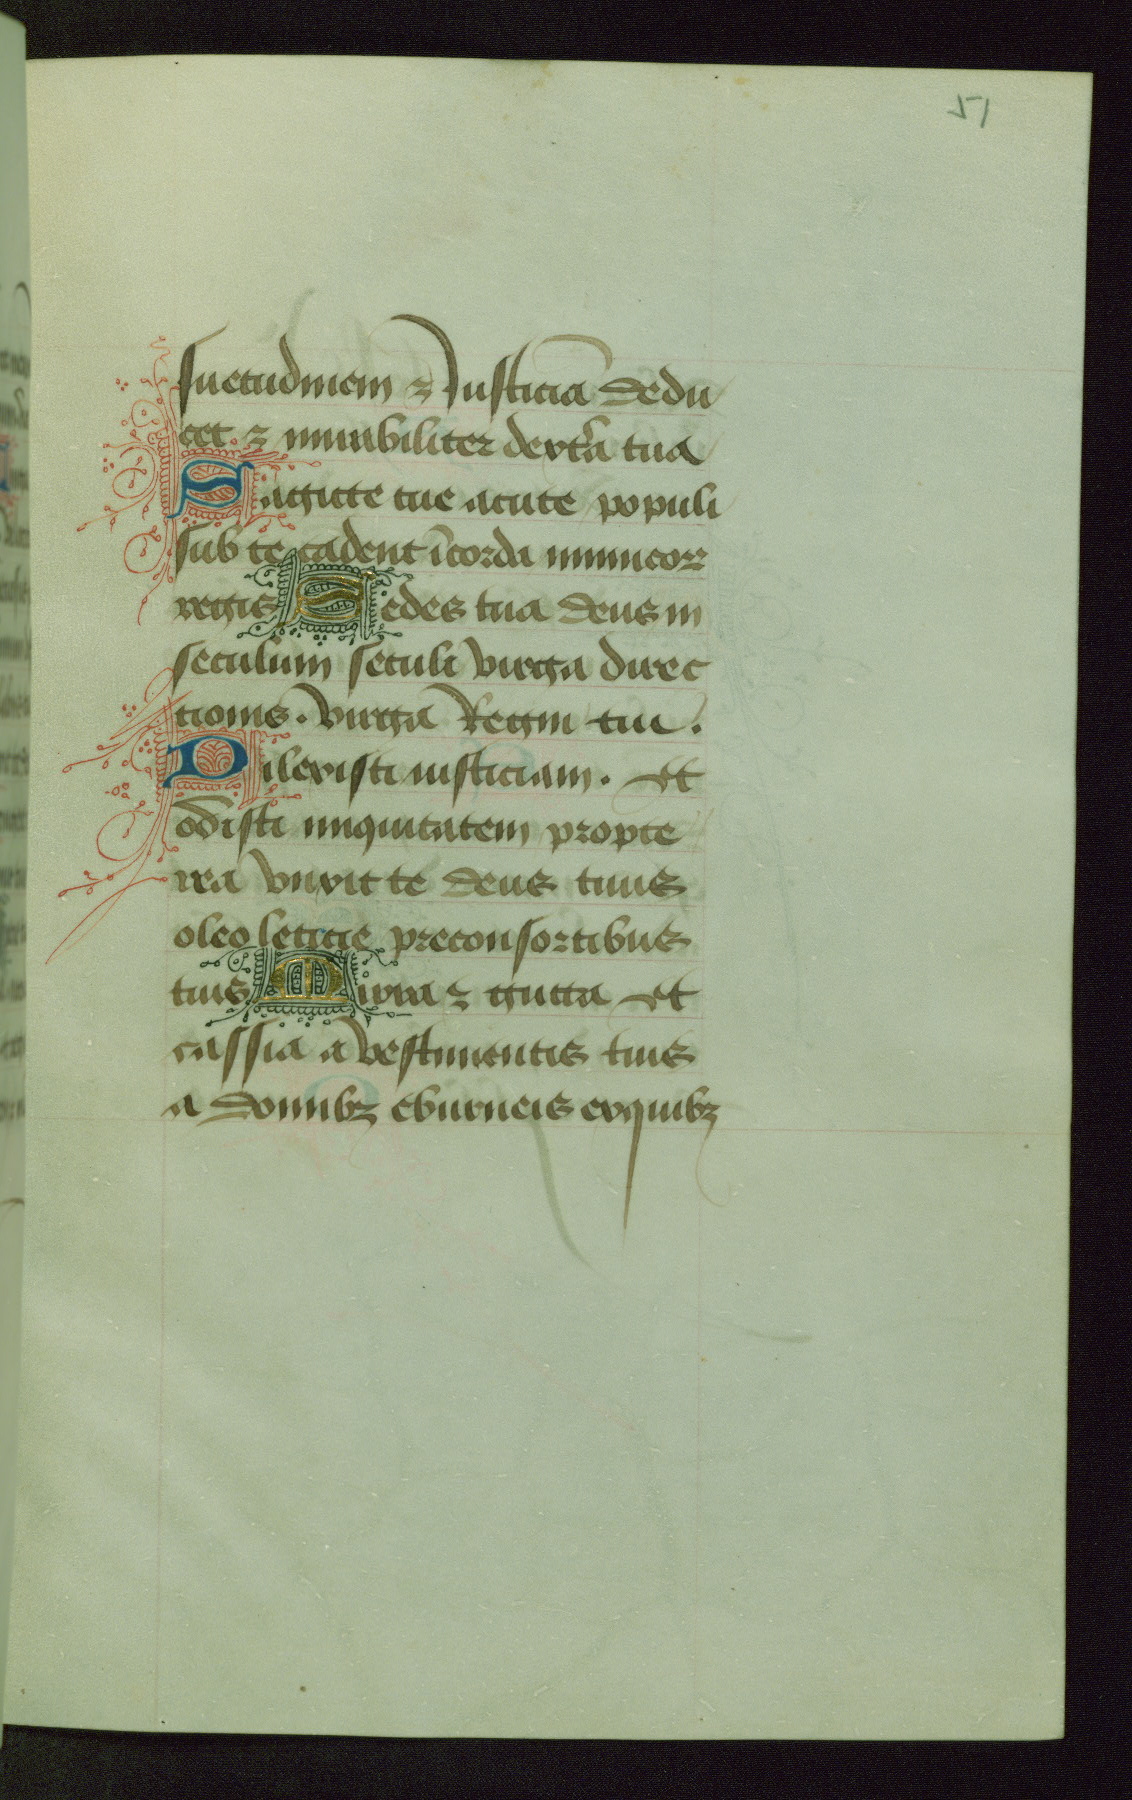 51
suetudinem ⁊ Iusticiā dedu
cet ⁊ mirabiliter dext̃a tua
Sagitte tue acute populi
sub te cadent ī corda inimicor
regis Sedes tua deus in
seculum seculi virga direc
tionis . virga Regni tui .
Dilexisti iusticiam . et
odisti iniquitatem propte
rea vnxit te deus tuus
oleo leticie preconsortibus
tuis Mirra ⁊ gutta et
cassia a vestimentis tuis
a domibꝫ eburneis exquibꝫ